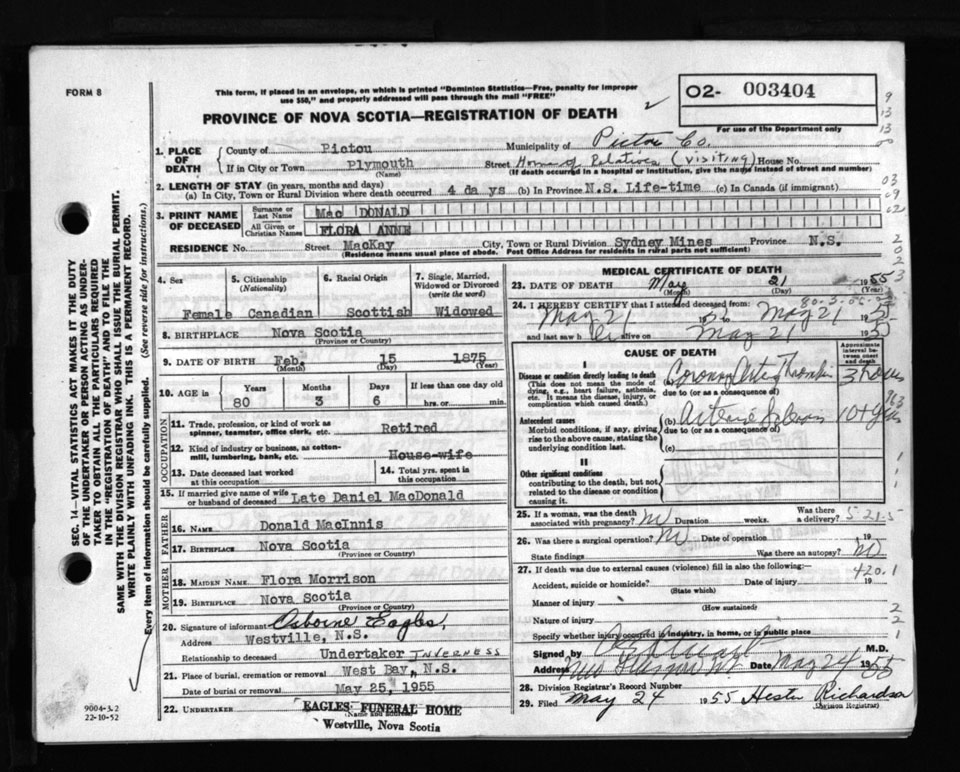 FORM 8
This form, if placed in an envelope, on which is printed "Dominion Statistics—Free, penalty for improper
use $50," and properly addressed will pass through the mail "FREE"
PROVINCE OF NOVA SCOTIA—REGISTRATION OF DEATH
O2- 003404
For use of the Department only
1. PLACE OF DEATH
County of Pictou Municipality of Pictou Co.
If in City or Town Plymouth Street Home of Relatives (visiting) House No.
(Name) (If death occurred in a hospital or institution, give the name instead of street and number)
2. LENGTH OF STAY (in years, months and days)
(a) In City, Town or Rural Division where death occurred 4 days (b) In Province N.S. Life-time (c) In Canada (if immigrant)
3. PRINT NAME OF DECEASED
Surname or Last Name Mac DONALD
All Given or Christian Names FLORA ANNE
RESIDENCE No. Street MacKay City, Town or Rural Division Sydney Mines Province N.S.
(Residence means usual place of abode. Post Office Address for residents of rural parts not sufficient)
4. Sex Female
5. Citizenship (Nationality) Canadian
6. Racial Origin Scottish
7. Single, Married, Widowed or Divorced (write the word) Widowed
8. BIRTHPLACE Nova Scotia
(Province or Country)
9. DATE OF BIRTH Feb. 15 1875
(Month) (Day) (Year)
10. AGE is Years 80 Months 3 Days 6 If less than one day old hrs. or min.
OCCUPATION
11. Trade, profession, or kind of work as spinner, teamster, office clerk, etc. Retired
12. Kind of industry or business, as cotton-mill, lumbering, bank, etc. House-wife
13. Date deceased last worked at this occupation
14. Total yrs. spent in this occupation
15. If married give name of wife or husband of deceased Late Daniel MacDonald
FATHER
16. NAME Donald MacInnis
17. BIRTHPLACE Nova Scotia
(Province or Country)
MOTHER
18. MAIDEN NAME. Flora Morrison
19. BIRTHPLACE Nova Scotia
(Province or Country)
20. Signature of informant Osborne Eagles,
Address Westville, N.S.
Relationship to deceased Undertaker INVERNESS
21. Place of burial, cremation or removal West Bay, N.S.
Date of burial or removal May 25, 1955
22. UNDERTAKER EAGLES FUNERAL HOME
(Name and Address)
Westville, Nova Scotia
MEDICAL CERTIFICATE OF DEATH
23. DATE OF DEATH May 21 1955
(Month) (Day) (Year)
24. I HEREBY CERTIFY that I attended deceased from:
May 21 to May 21 19
and last saw h alive on May 21 19
CAUSE OF DEATH
Approximate interval between onset and death
I
Disease or condition directly leading to death
(This does not mean the mode of dying, e.g., heart failure, asthenia, etc. It means the disease, injury, or complication which caused death.)
(a) Coronary 3 hours
due to (or as a consequence of)
Antecedent causes
Morbid conditions, if any, giving rise to the above cause, stating the underlying condition last.
(b) 10+ yrs
due to (or as a consequence of)
(c)
II
Other significant conditions
contributing to the death, but not related to the disease or condition causing it.
25. If a woman, was the death associated with pregnancy? No Duration weeks. Was there a delivery? 5-21-5
26. Was there a surgical operation? No Date of operation 19
State findings Was there an autopsy? No
27. If death was due to external causes (violence) fill in also the following: 420.1
Accident, suicide or homicide? Date of injury 19
(State which)
Manner of injury
(How sustained)
Nature of injury
Specify whether injury occurred in industry, in home, or in public place
Signed by M.D.
Address New Glasgow Date May 24 1955
28. Division Registrar's Record Number
29. Filed May 24 1955 Hester Richardson
(Division Registrar)
SEC. 14—VITAL STATISTICS ACT MAKES IT THE DUTY
OF THE UNDERTAKER OR PERSON ACTING AS UNDER-
TAKER TO OBTAIN ALL THE PARTICULARS REQUIRED
IN THE "REGISTRATION OF DEATH" AND TO FILE THE
SAME WITH THE DIVISION REGISTRAR WHO SHALL ISSUE THE BURIAL PERMIT.
WRITE PLAINLY WITH UNFADING INK. THIS IS A PERMANENT RECORD.
Every item of information should be carefully supplied. (See reverse side for instructions.)
9004-3.2
22-10-52